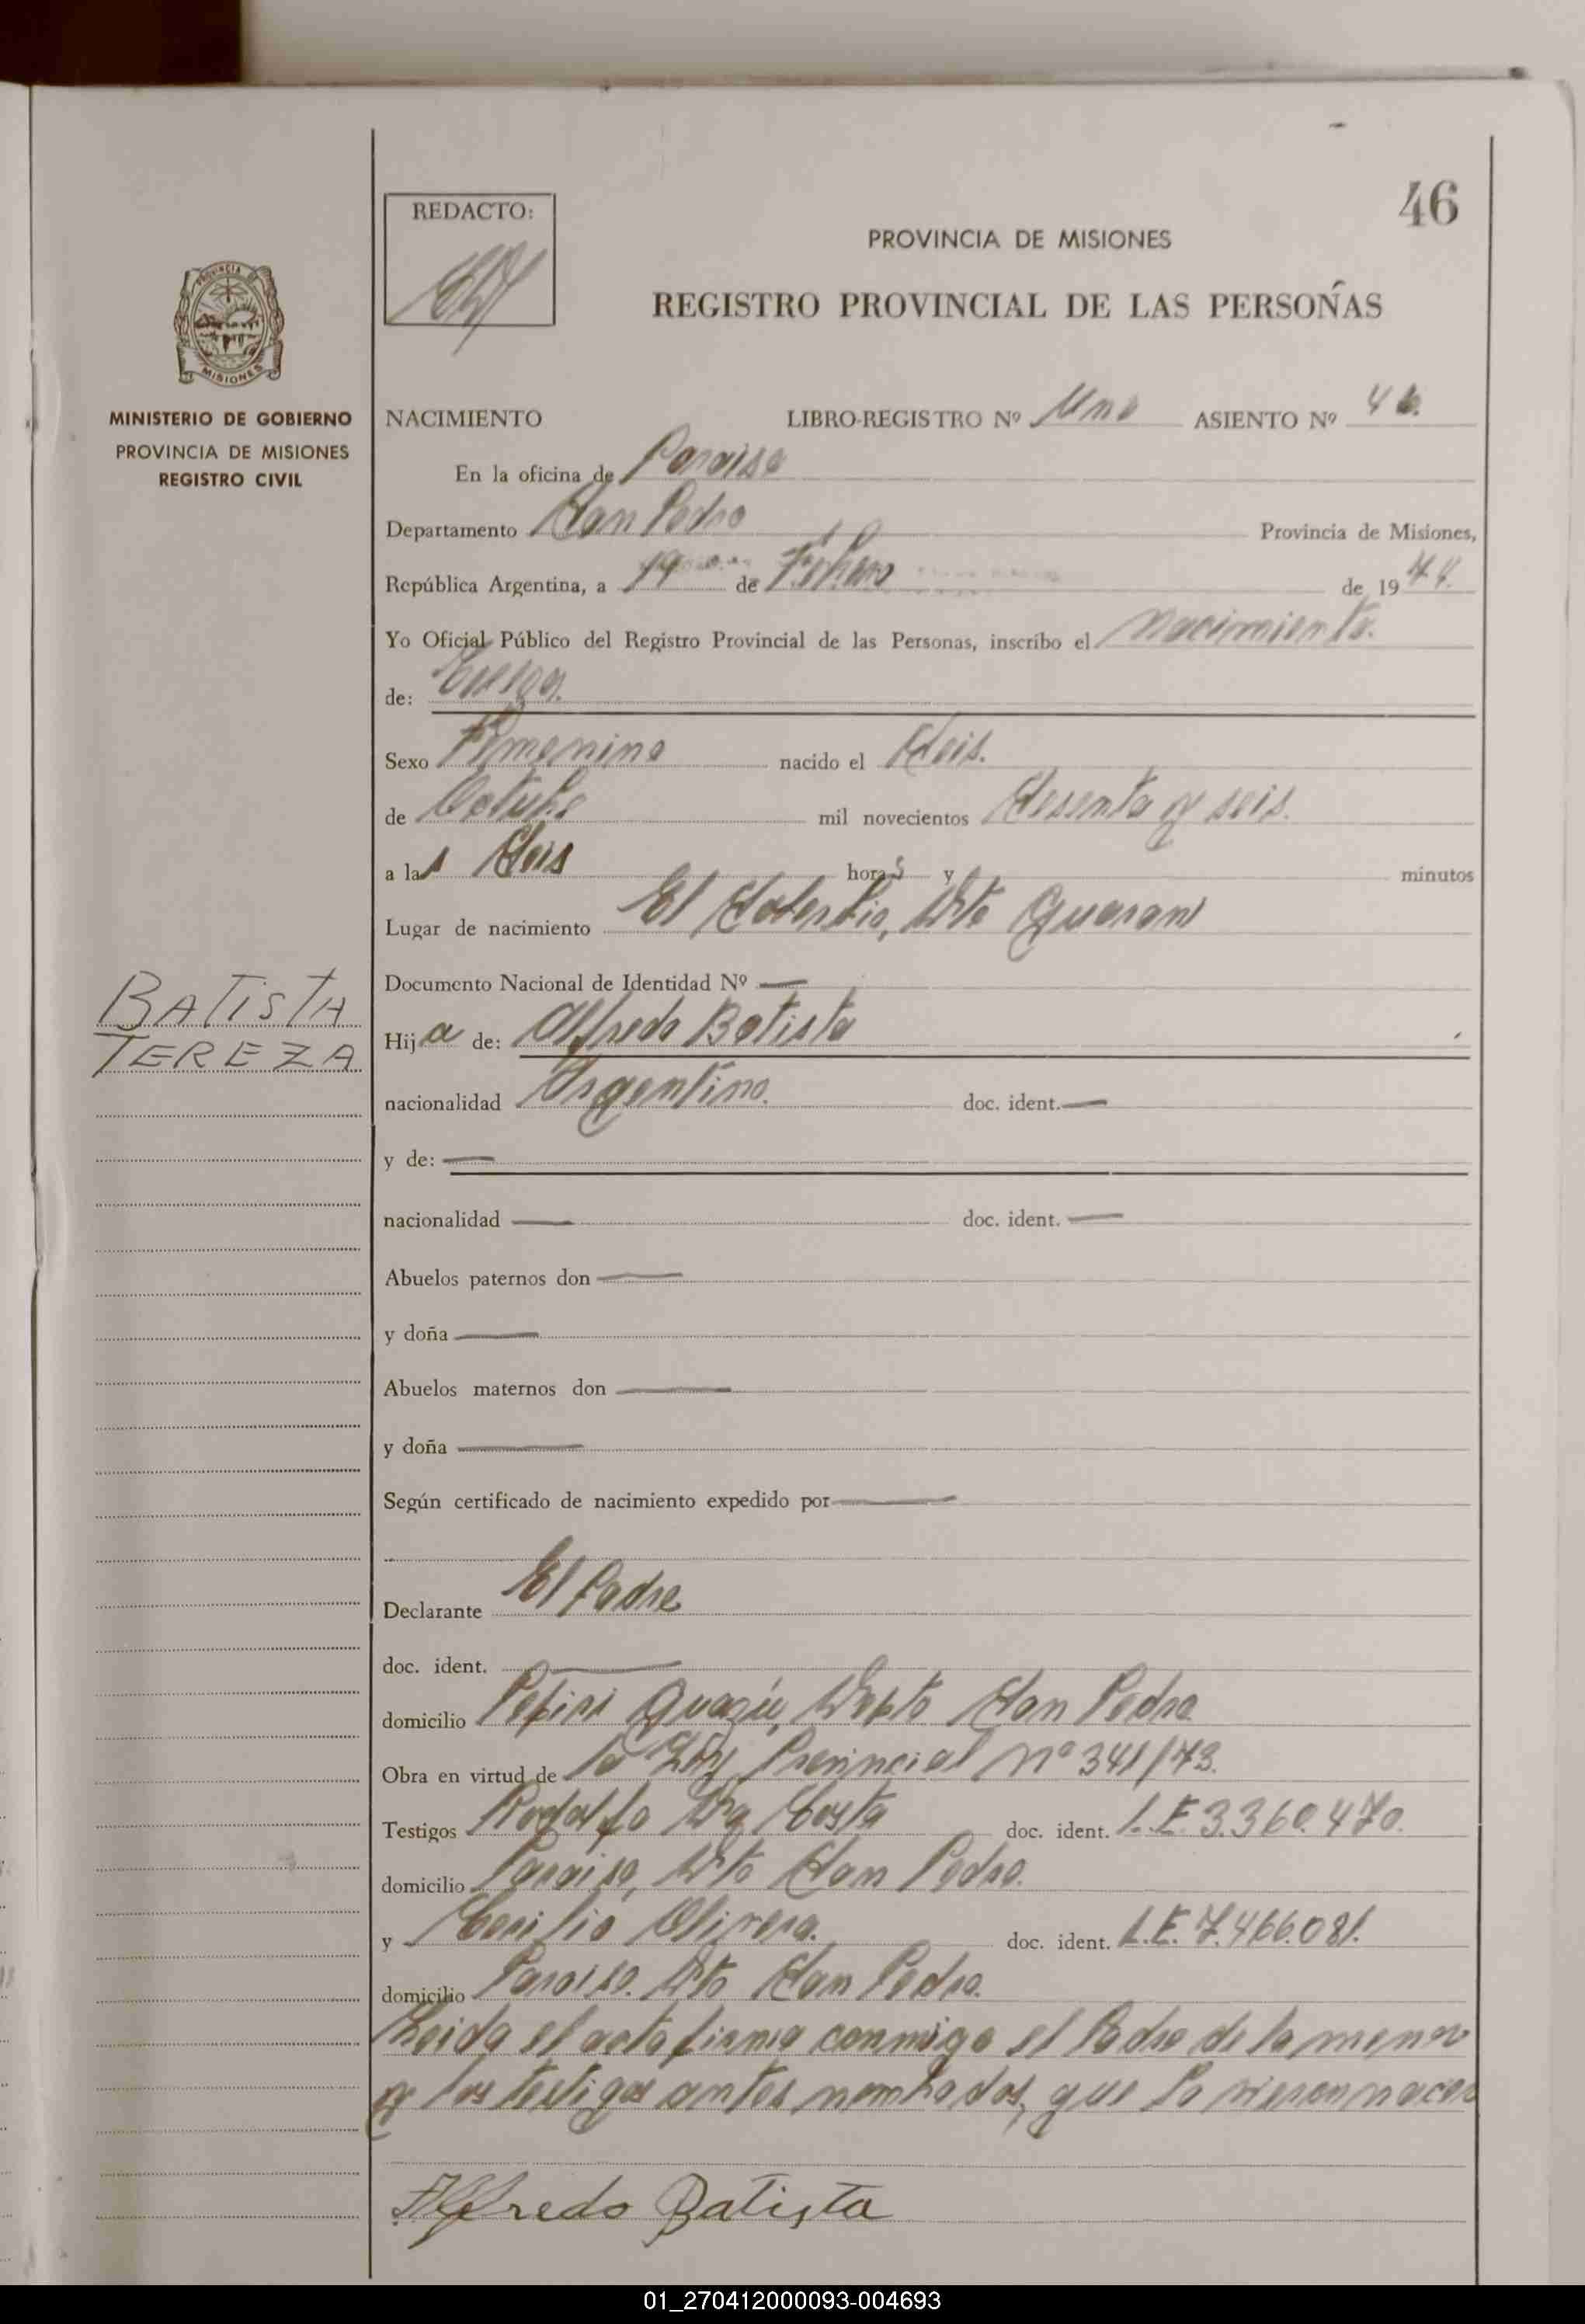 46
REDACTO:
PROVINCIA DE MISIONES
REGISTRO PROVINCIAL DE LAS PERSONAS
PROVINCIA DE
MISIONES
MINISTERIO DE GOBIERNO
PROVINCIA DE MISIONES
REGISTRO CIVIL
NACIMIENTO LIBRO-REGISTRO Nº Uno ASIENTO Nº 46.
En la oficina de Paraiso
Departamento San Pedro Provincia de Misiones,
República Argentina, a 19 de Febrero de 1974.
Yo Oficial Público del Registro Provincial de las Personas, inscribo el Nacimiento.
de: Tereza.
Sexo Femenino nacido el Seis.
de Octubre mil novecientos Sesenta y seis.
a las Seis horas y minutos
Lugar de nacimiento El Soberbio, Dto Guarani
Documento Nacional de Identidad Nº —
BATISTA
TEREZA
Hija de: Alfredo Batista
nacionalidad Argentino. doc. ident. —
y de: —
nacionalidad — doc. ident. —
Abuelos paternos don —
y doña —
Abuelos maternos don —
y doña —
Según certificado de nacimiento expedido por —
Declarante El Padre
doc. ident. —
domicilio Pepiri Guazú, Depto San Pedro
Obra en virtud de la Ley Provincial Nº 341/73.
Testigos Rodolfo Da Costa doc. ident. L.E. 3.360.470.
domicilio Paraiso, Dto San Pedro.
y Olivera. doc. ident. L.E. 7.466.081.
domicilio Paraiso. Dto San Pedro.
Leida el acta firma conmigo el Padre de la menor
y los testigos antes nombrados, que la vieron nacer
Alfredo Batista
01_270412000093-004693